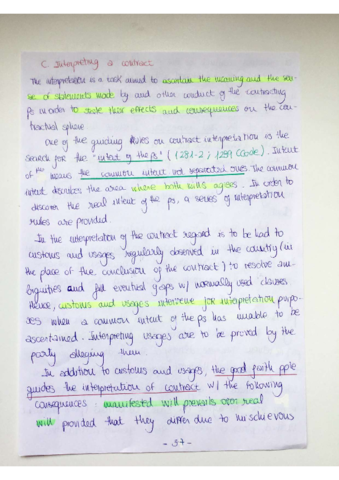 C. Interpreting a contract
The interpretation is a task aimed to ascertain the meaning and the sen-
se of statements made by and other conduct of the contracting
Ps in order to state their effects and consequences on the con-
tractual sphere.
One of the guiding rules on contract interpretation is the
search for the "intent of the ps" (1281-2; 1289 CCode). Intent
of the ps means the common intent not separated ones. The common
intent describes the area where both wills agrees. In order to
discover the real intent of the ps, a series of interpretation
rules are provided.
In the interpretation of the contract regard is to be had to
customs and usages regularly observed in the country (in
the place of the conclusion of the contract) to resolve am-
biguities and fill eventual gaps w/ normally used clauses
Hence, customs and usages intervene for interpretation purpo-
ses when a common intent of the ps has unable to be
ascertained. Interpreting usages are to be proved by the
party alleging them.
In addition to customs and usages, the good faith pple
guides the interpretation of contract w/ the following
consequences: manifested will prevails over real
will provided that they differ due to mischievous
- 57 -